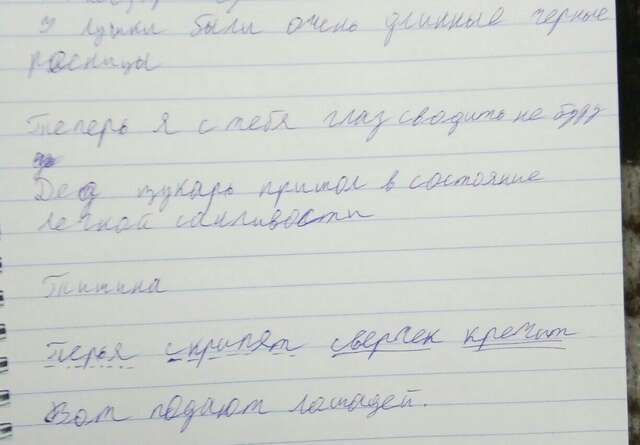 У лушки были очень длинные черные
ресницы
Теперь я с тебя глаз сводить не буду
Дед щукарь пришол в состояние
легкой сонливости
Тишина
Перья скрипят сверчек кречит
Вот подают лошадей.